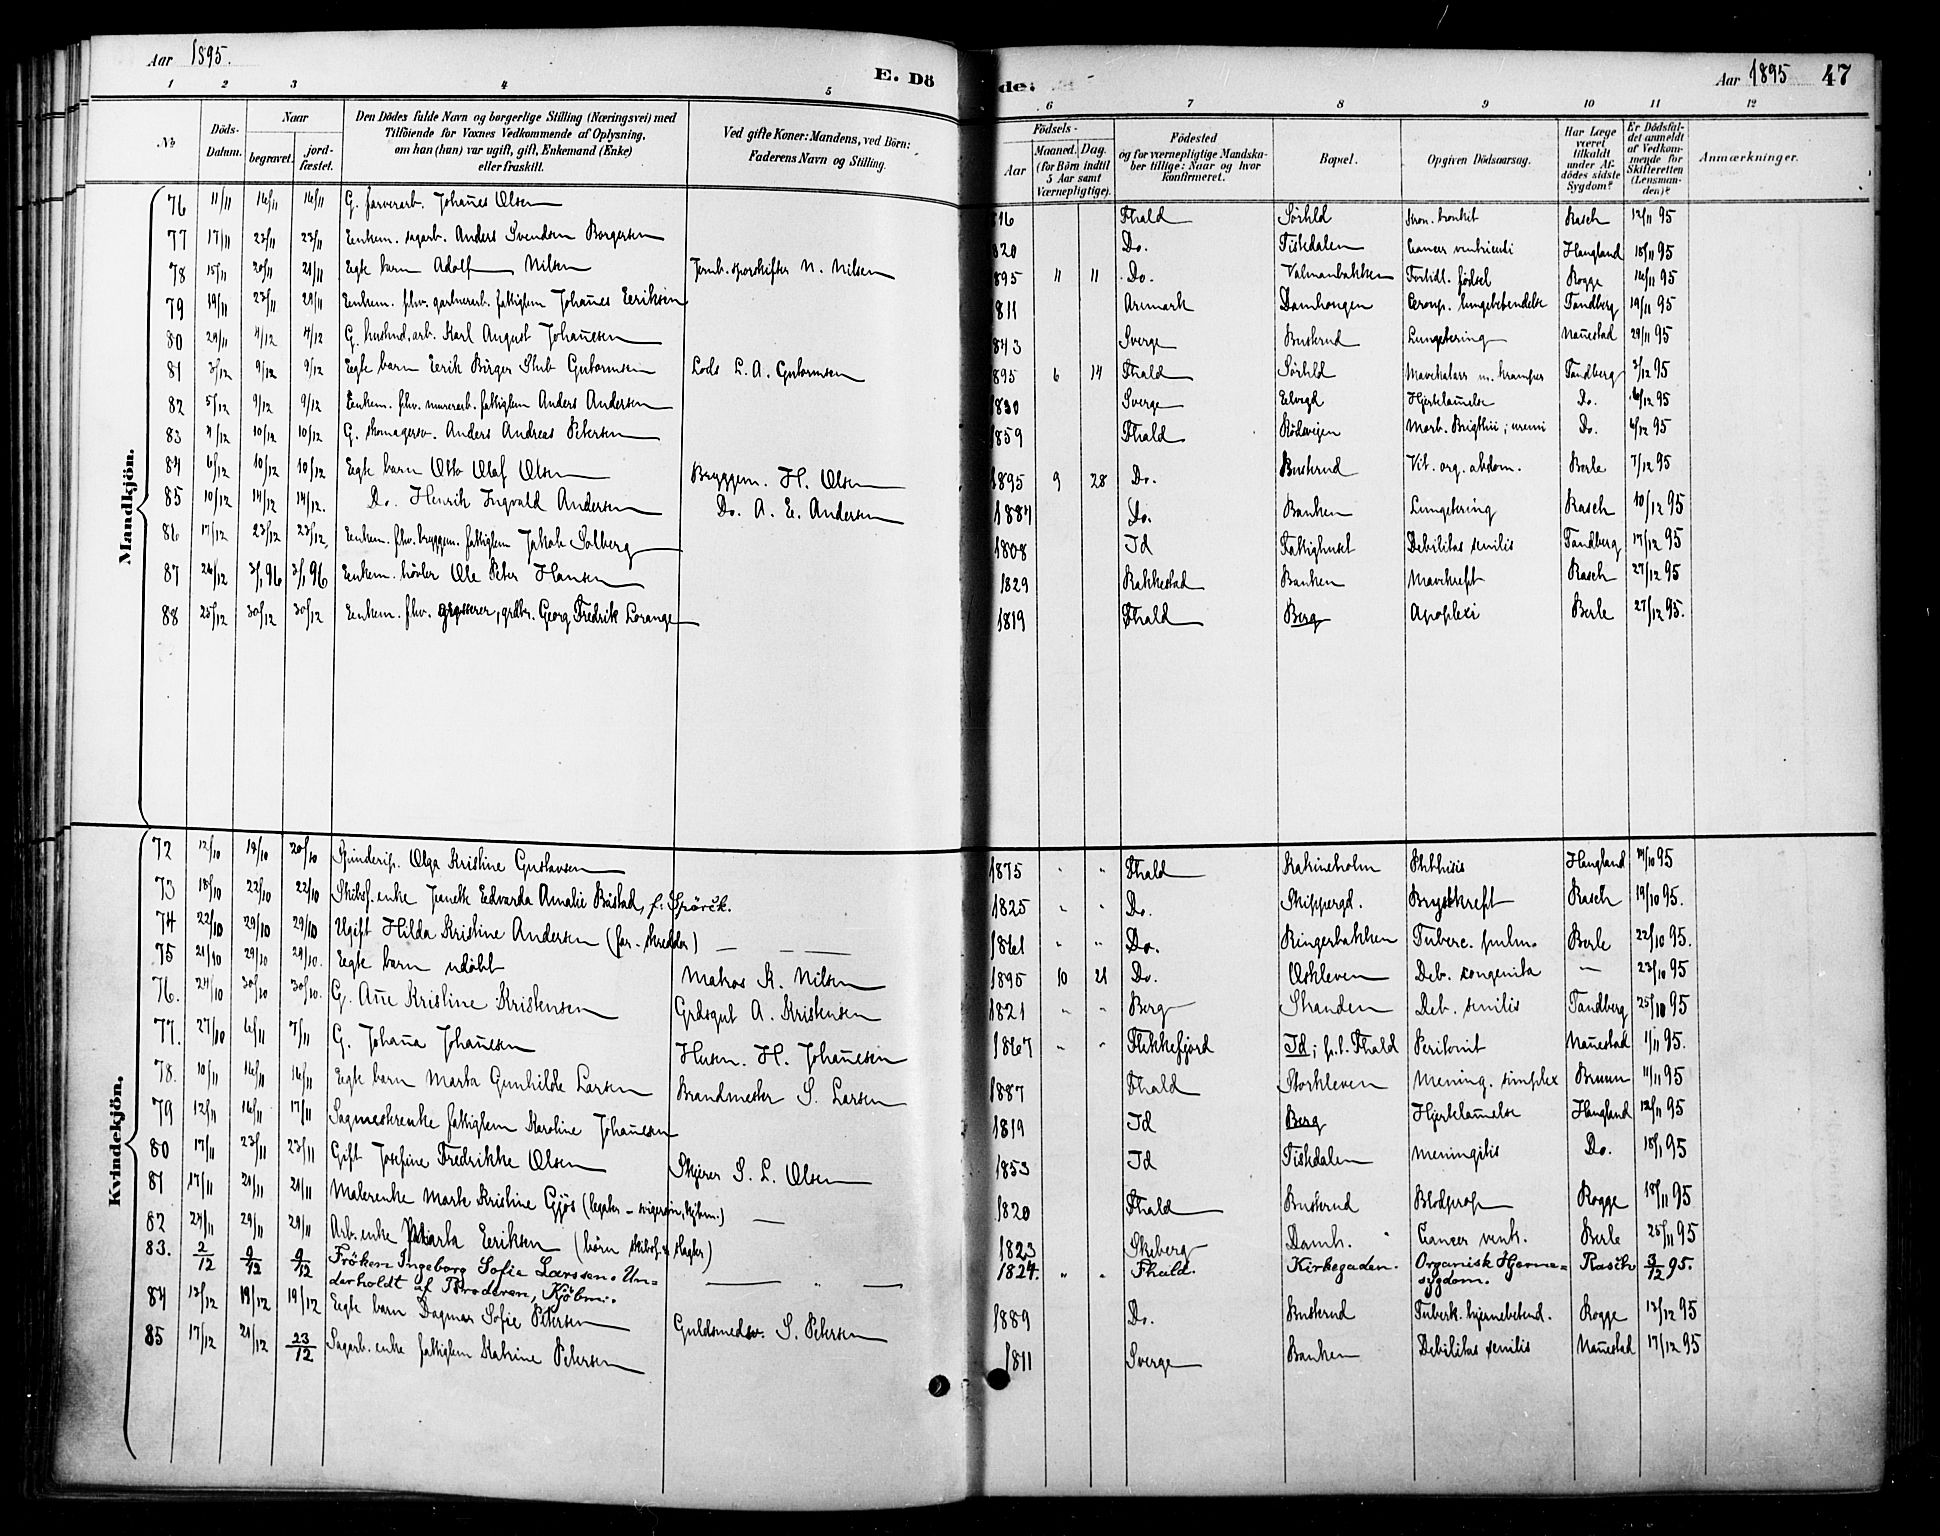 Aar 1895.
E. Dö
de:
Aar 1895 47
1 2 3 4 5 6 7 8 9 10 11 12
No
Döds-Datum.
Naar
begravet.
jord-fæstet.
Den Dödes fulde Navn og borgerlige Stilling (Næringsvei) med
Tilföiende for Voxnes Vedkommende af Oplysning,
om han (hun) var ugift, gift, Enkemand (Enke)
eller fraskilt.
Ved gifte Koner: Mandens, ved Börn:
Faderens Navn og Stilling.
Födsels-
Aar
Maaned. Dag.
(for Börn indtil
5 Aar samt
Værnepligtige).
Födested
og for værnepligtige Mandska-
ber tillige: Naar og hvor
konfirmeret.
Bopæl.
Opgiven Dödsaarsag.
Har Læge
været
tilkaldt
under Af-
dödes sidste
Sygdom?
Er Dödsfal-
det anmeldt
af Vedkom-
mende for
Skifteretten
(Lensman-
den)?
Anmærkninger.
Mandkjön.
76 11/11 16/11 16/11 G. farverarb. Johañes Olsen 816 Fhald Sörhld kron. bronkit Rasch 12/11 95
77 17/11 23/11 23/11 Enkem. sagarb. Anders Svendsen Borgersen 820 Do. Tistedalen Cancer ventriculi Haugland 18/11 95
78 15/11 20/11 21/11 Egte barn Adolf Nilsen Jernb. sporskifter N. Nilsen 895 11 11 Do. Valmanbakken Fortidl. födsel Rogge 16/11 95
79 19/11 23/11 29/11 Enkem. fhv. gartnerarb. fattiglem Johañes Eeriksen 811 Aremark Damhaugen Croup. lungebetendelse Tandberg 19/11 95
80 29/11 4/12 4/12 G. husbnd. arb. Karl August Johañesen 843 Sverge Busterud Lungetæring Nañestad 29/11 95
81 3/12 9/12 9/12 Egte barn Eerik Birger Stub Gutormsen Lods L. A. Gutormsen 895 6 14 Fhald Sörhld Mavekatarr m. kramper Tandberg 3/12 95
82 5/12 9/12 9/12 Enkem. fhv. murerarb. fattiglem Anders Andersen 1830 Sverge Hjertelañelse Do. 6/12 95
83 4/12 10/12 10/12 G. skomagersv. Anders Andreas Petersen 1859 Fhald Rödsvejen Morb. Brigthii; uremi Do. 6/12 95
84 6/12 10/12 10/12 Egte barn Otto Olaf Olsen Bryggem. H. Olsen 1895 9 28 Do. Busterud Vit. org. abdom. Berle 7/12 95
85 10/12 14/12 14/12. Do. Henrik Ingvald Andersen Do. A. E. Andersen 1884 Do. Banken Lungetæring Rasch 10/12 95
86 17/12 23/12 23/12. Enkem. fhv. bryggem. fattiglem Jakob Solberg 1808 Id Fattighuset Debilitas senilis Tandberg 17/12 95
87 26/12 3/1 96 3/1 96 Enkem. hövler Ole Peter Hansen 1829 Rakkestad Banken Mavekræft Rasch 27/12 95
88 25/12 30/12 30/12 Enkem. fhv. grosserer, grdbr. Georg Fredrik Lorange 1819 Fhald Berg Apoplexi Berle 27/12 95.
Kvindekjön.
72 12/10 19/10 20/10 Spinderip. Olga Kristine Gustavsen 1875 Fhald Katrineholm Phthisis Haugland 14/10 95
73 18/10 22/10 22/10 Skibsf. enke Jeanette Edvarda Amalie Bustad, f. Spörck. 1825 Do. Skippergd. Brystkræft Rasch 19/10 95.
74 22/10 29/10 29/10 Ugift Hilda Kristine Andersen (far - skredder) 1861 Do. Ringerbakken Tuberc. pulm. Berle 22/10 95.
75 21/10 29/10 29/10. Egte barn udöbt Matros K. Nilsen 1895 10 21 Do. Oskleven Deb. congenita 23/10 95
76. 24/10 30/10 30/10. G. Añe Kristine Kristensen Grdsgut A. Kristensen 1821 Berg Stranden Deb. senilis Tandberg 25/10 95
77. 27/10 6/11 7/11 G. Johaña Johañesen Husm. H. Johañesen 1867 Flekkefjord Id; f. t. Fhald Peritonit Nañestad 1/11 95.
78. 10/11 16/11 16/11 Egte barn Marta Gunhilde Larsen Brandmester S. Larsen 1887 Fhald Storkleven Mening. simplex Bruun 11/11 95
79 12/11 16/11 17/11 Sagmesterenke fattiglem Karoline Johañesen 1819 Id Berg Hjertelañelse Haugland 12/11 95
80 17/11 23/11 23/11 Gift Josefine Fredrikke Olsen Skjører S. L. Olsen 1853 Id Tistedalen Meningitis Do. 18/11 95
81 17/11 21/11 21/11 Malerenke Marte Kristine Gjös 1820 Fhald Busterud Blodprop Rogge 18/11 95
82 24/11 29/11 29/11 Arb. enke Marta Eeriksen (börn skibsf. & slagter) 1823 Skeberg Damh. Cancer ventr. Berle 25/11 95
83. 2/12 9/12 9/12 Fröken Ingeborg Sofie Larssen. Un=
derholdt af Broderen, Kjöbm. 1824. Fhald. Kirkegaden. Organisk Hjerne=
sygdom. Rasch 3/12 95.
84 12/12 19/12 19/12 Egte barn Dagmar Sofie Petersen Guldsmedsv. S. Petersen 1889 Do. Busterud Tuberk. hjernebetend. Rogge 13/12 95
85 17/12 21/12 23/12 Sagarb. enke fattiglem Katrine Petersen 1811 Sverge Banken Debilitas senilis Nañestad 17/12 95